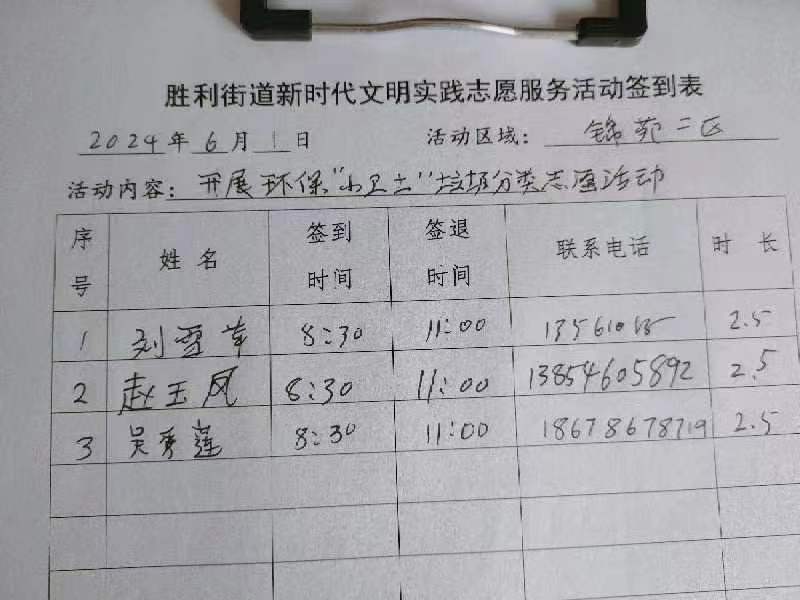 胜利街道新时代文明实践志愿服务活动签到表
2024年6月1日 活动区域：锦苑二区
活动内容：开展环保“小卫士”垃圾分类志愿活动
序号 姓名 签到时间 签退时间 联系电话 时长
1 刘雪 8:30 11:00 2.5
2 赵玉风 8:30 11:00 13854605892 2.5
3 吴秀莲 8:30 11:00 18678678719 2.5